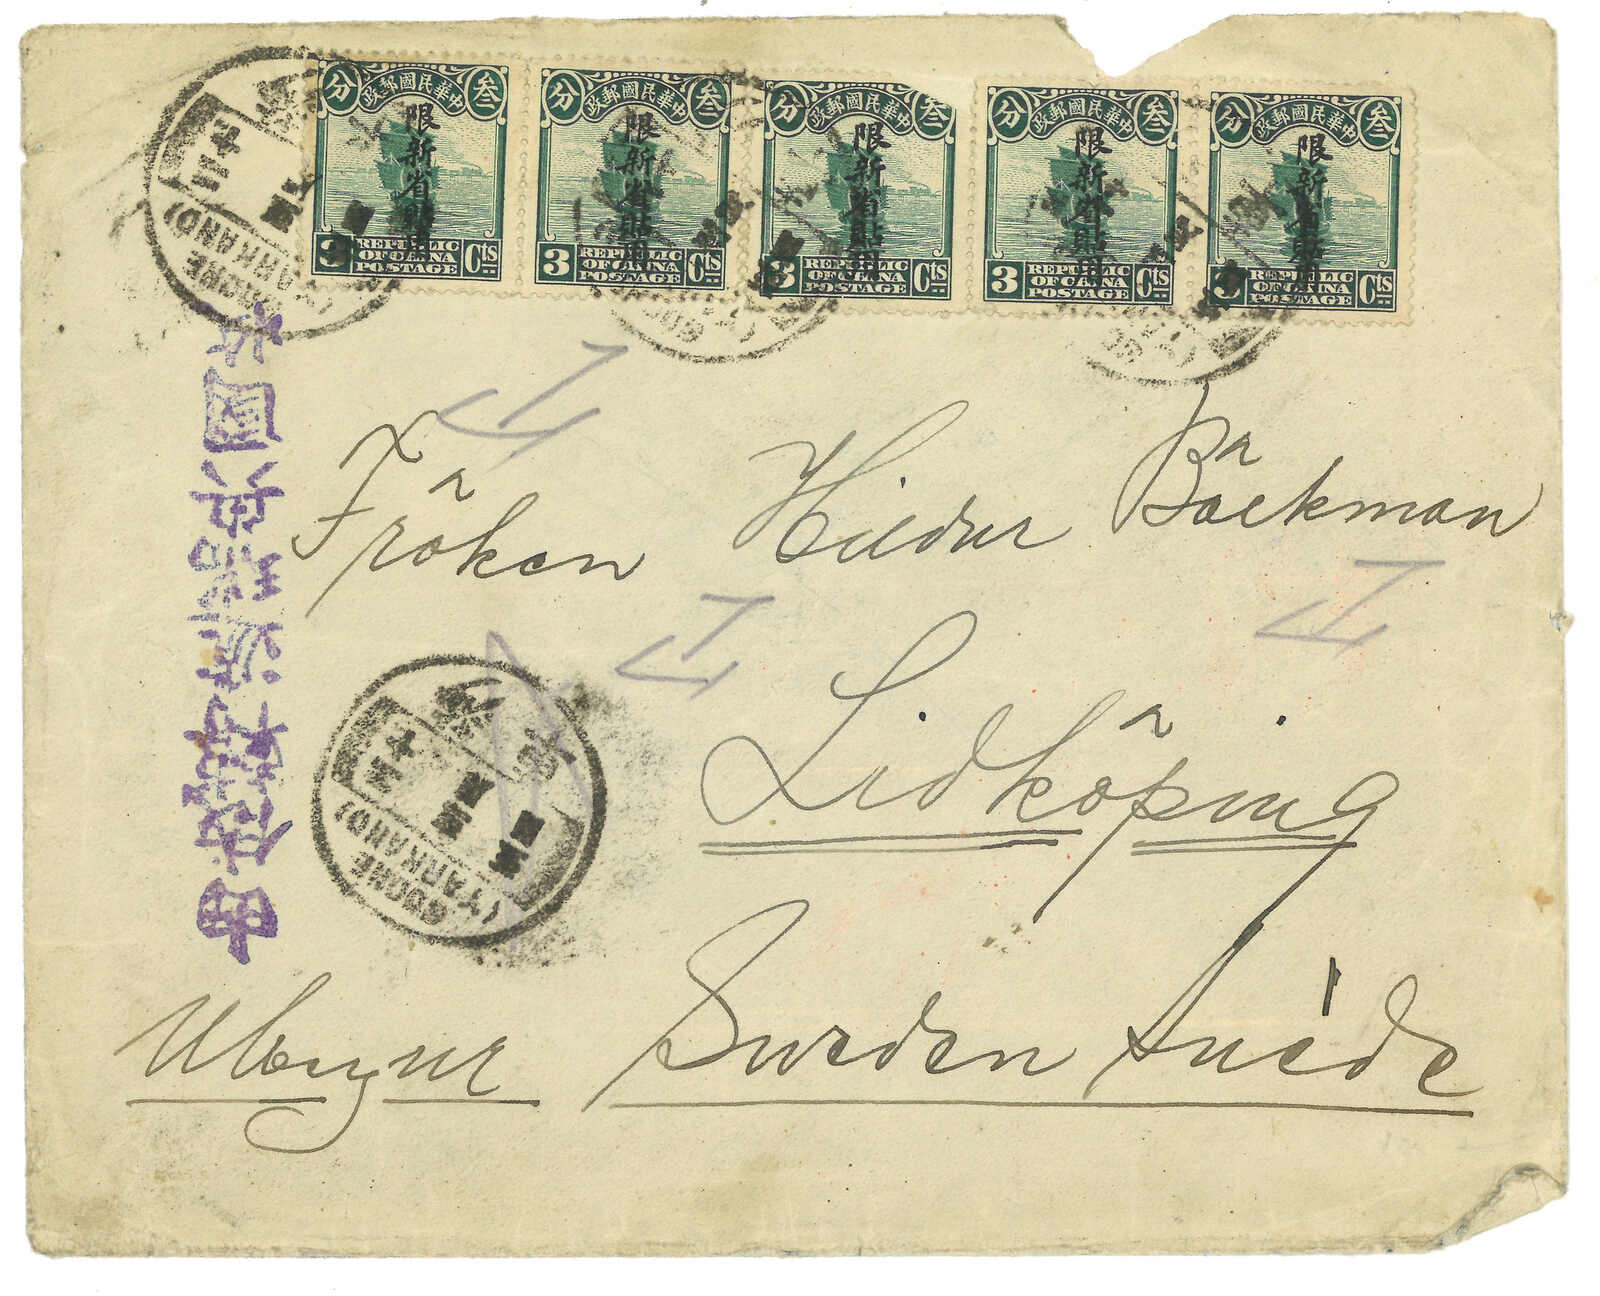 叁 中華民國郵政 分
限新省貼用
3 REPUBLIC OF CHINA POSTAGE Cts
叁 中華民國郵政 分
限新省貼用
3 REPUBLIC OF CHINA POSTAGE Cts
叁 中華民國郵政 分
限新省貼用
3 REPUBLIC OF CHINA POSTAGE Cts
叁 中華民國郵政 分
限新省貼用
3 REPUBLIC OF CHINA POSTAGE Cts
叁 中華民國郵政 分
限新省貼用
3 REPUBLIC OF CHINA POSTAGE Cts
SOCHE
(YARKAND)
Fröken Hildur Bäckman
Lidköping
SOCHE
(YARKAND)
Sweden Suède